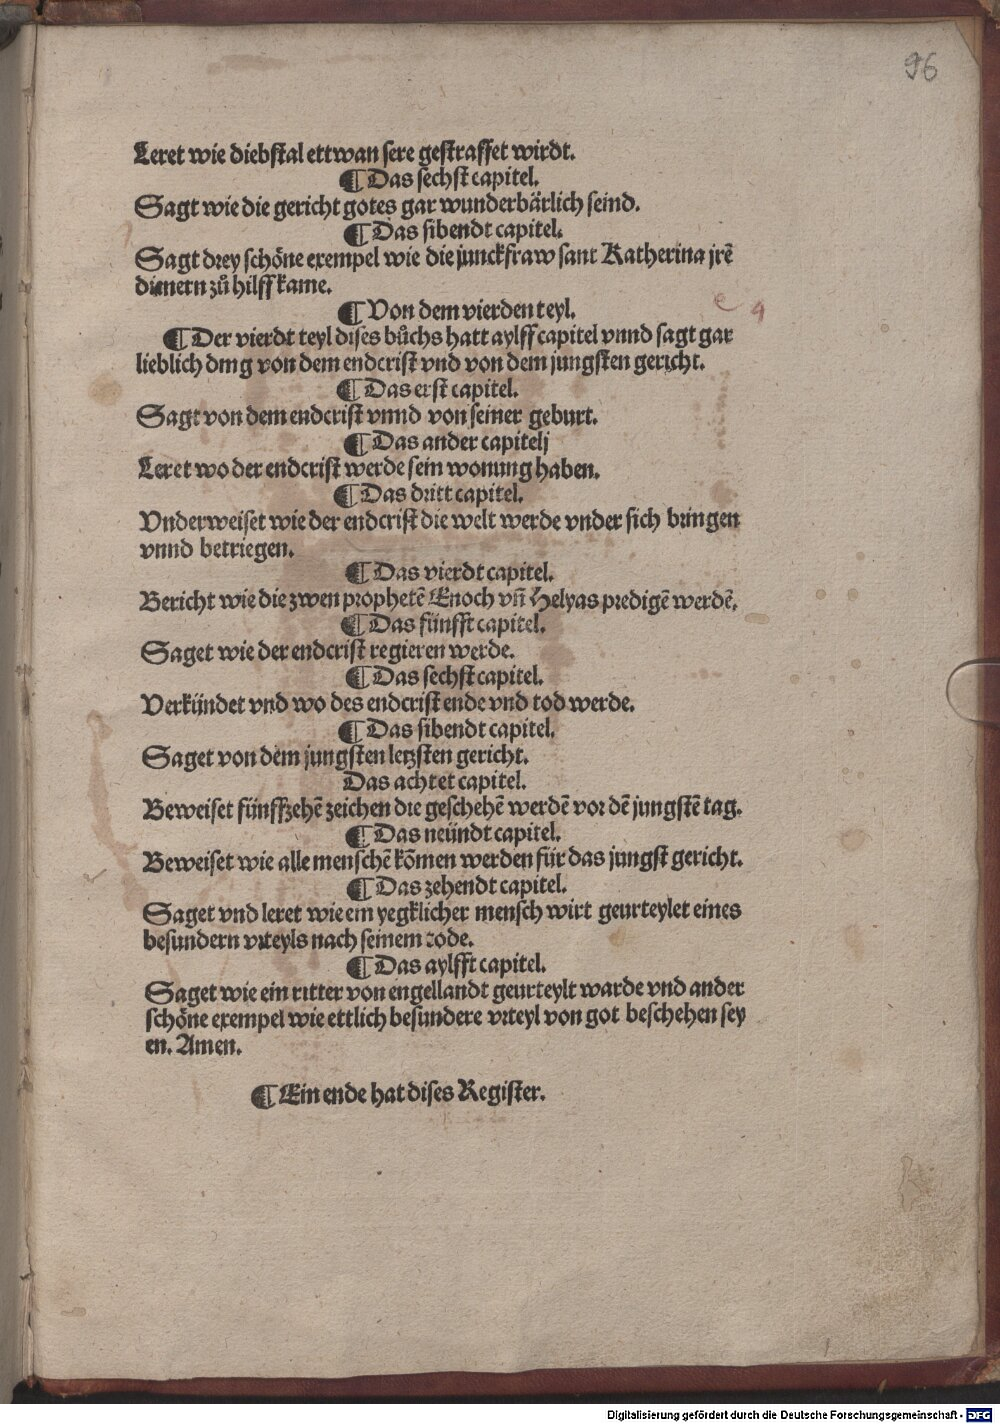 96
Leret wie diebstal ettwan sere gestraffet wirdt.
¶ Das sechst capitel.
Sagt wie die gericht gotes gar wunderbärlich seind.
¶ Das sibendt capitel.
Sagt drey schöne exempel wie die junckfraw sant Katherina jrē
dienern zů hilff kame.
¶ Von dem vierden teyl.
¶ Der vierdt teyl dises bůchs hatt aylff capitel vnnd sagt gar
lieblich ding von dem endcrist vnd von dem jungsten gericht.
¶ Das erst capitel.
Sagt von dem endcrist vnnd von seiner geburt.
¶ Das ander capitelj
Leret wo der endcrist werde sein wonung haben.
¶ Das dritt capitel.
Vnderweiset wie der endcrist die welt werde vnder sich bringen
vnnd betriegen.
¶ Das vierdt capitel.
Bericht wie die zwen prophetē Enoch vñ Helyas predigē werdē.
¶ Das fünfft capitel.
Saget wie der endcrist regieren werde.
¶ Das sechst capitel.
Verkündet vnd wo des endcrist ende vnd tod werde.
¶ Das sibendt capitel.
Saget von dem jungsten letzsten gericht.
Das achtet capitel.
Beweiset fünffzehē zeichen die geschehē werdē vor dē jungstē tag.
¶ Das neündt capitel.
Beweiset wie alle menschē kōmen werden für das jungst gericht.
¶ Das zehendt capitel.
Saget vnd leret wie ein yegklicher mensch wirt geurteylet eines
besundern vrteyls nach seinem tode.
¶ Das aylfft capitel.
Saget wie ein ritter von engellandt geurteylt warde vnd ander
schöne exempel wie ettlich besundere vrteyl von got beschehen sey
en. Amen.
¶ Ein ende hat dises Register.
Digitalisierung gefördert durch die Deutsche Forschungsgemeinschaft - DFG